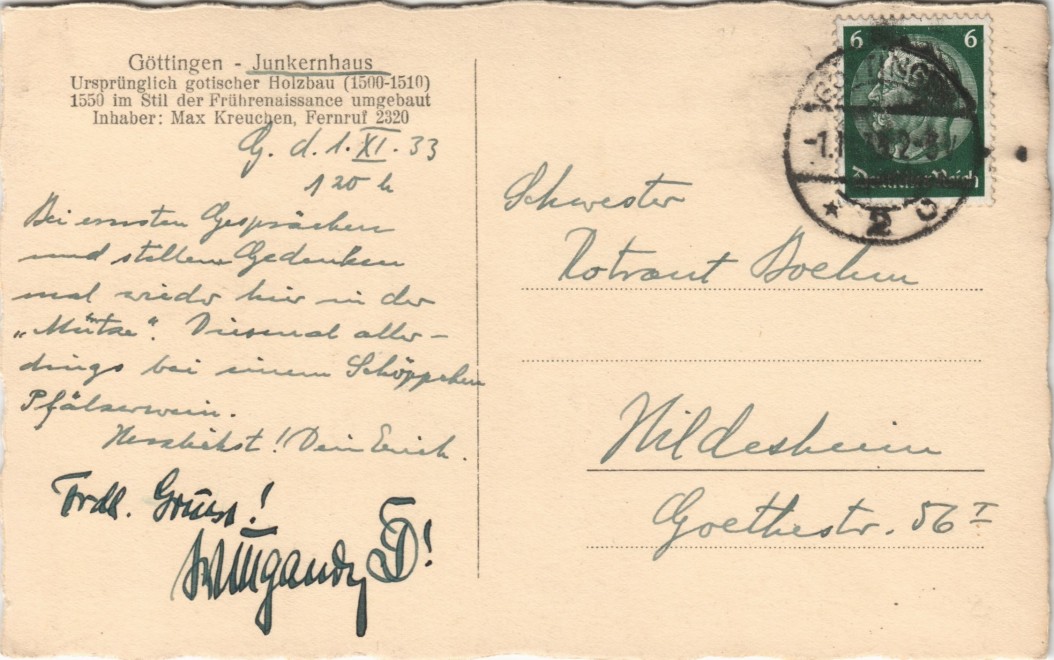 Göttingen - Junkernhaus
Ursprünglich gotischer Holzbau (1500-1510)
1550 im Stil der Frührenaissance umgebaut
Inhaber: Max Kreuchen, Fernruf 2320
G. d. 1. XI. 33
120 h
Bei ernsten Gesprächen
und stillem Gedenken
mal wieder hier in der
„Mütze“. Diesmal aller-
dings bei einem Schöppchen
Pfälzerwein.
Herzlichst! Dein Erich.
Frdl. Gruss!
6 6
Deutsches Reich
2
Schwester
Rotraut Boehm
Hildesheim
Goethestr. 56 I